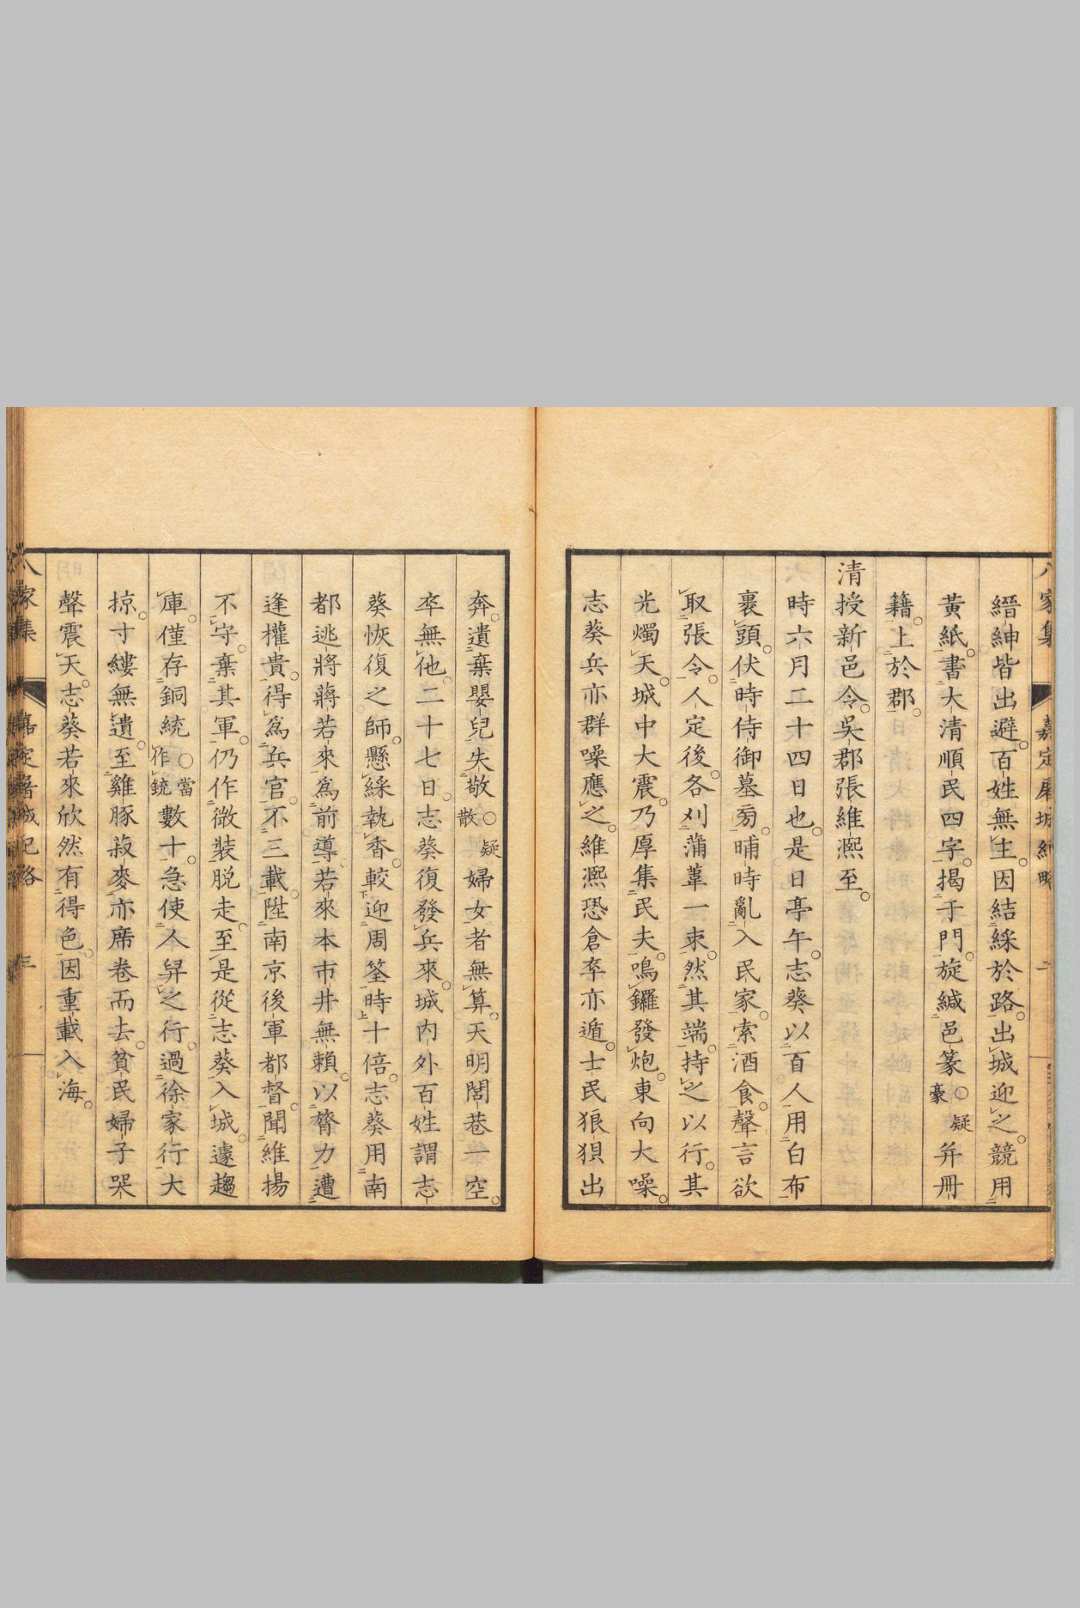 八家集　嘉定屠城紀略　二
縉紳皆出避。百姓無主。因結綵於路。出城迎之。競用
黃紙。書大清順民四字。揭于門。旋緘邑篆○疑豪并冊
籍。上於郡。
清授新邑令。吳郡張維熈至。
時六月二十四日也。是日亭午。志葵以百人用白布
裹頭。伏時侍御墓旁。晡時亂入民家。索酒食。聲言欲
取張令。人定後。各刈蒲葦一束。然其端。持之以行。其
光燭天。城中大震。乃厚集民夫。鳴鑼發炮。東向大噪。
志葵兵亦群噪應之。維熈恐倉卒亦遁。士民狼狽出
奔。遺棄嬰兒。失敬○疑散婦女者無算。天明閭巷一空。
卒無他。二十七日。志葵復發兵來。城內外百姓謂志
葵恢復之師。懸綵執香。較迎周荃時十倍。志葵用南
都逃將蔣若來爲前導。若來本市井無賴。以膂力遭
逢權貴。得爲兵官。不三載。陞南京後軍都督。聞維揚
不守。棄其軍。仍作微裝脫走。至是從志葵入城。遽趨
庫。僅存銅統○當作銃數十。急使人舁之行。過徐家行。大
掠。寸縷無遺。至雞豚菽麥。亦席卷而去。貧民婦子哭
聲震天。志葵若來欣然有得色。因重載入海。
八家集　嘉定屠城紀略　三